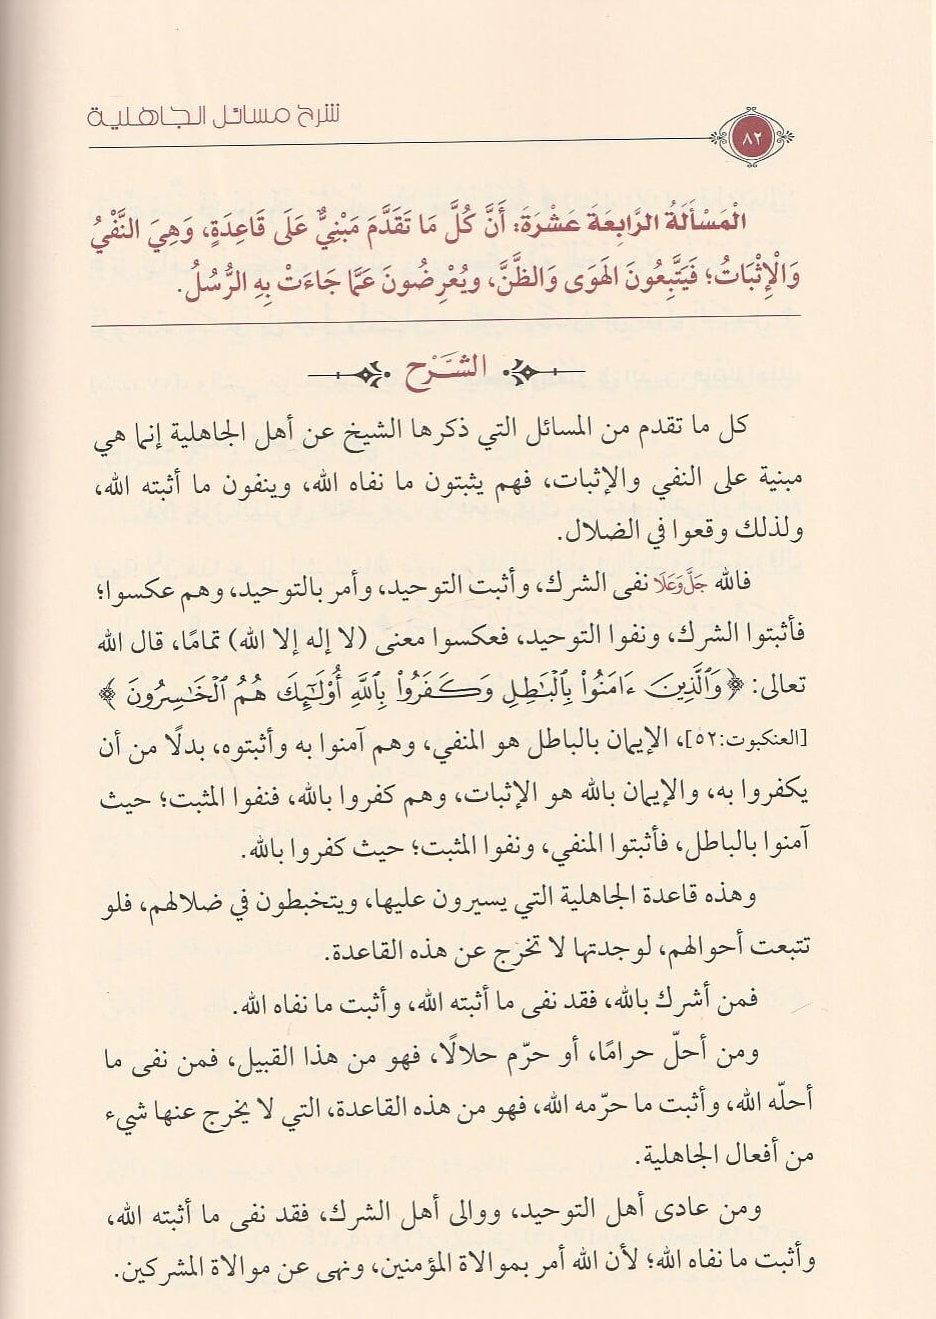 شرح مسائل الجاهلية
٨٢
الْمَسْأَلَةُ الرَّابِعَةَ عَشْرَةَ: أَنَّ كُلَّ مَا تَقَدَّمَ مَبْنِيٌّ عَلَى قَاعِدَةٍ، وَهِيَ النَّفْيُ
وَالْإِثْبَاتُ؛ فَيَتَّبِعُونَ الهَوَى وَالظَّنَّ، ويُعْرِضُونَ عَمَّا جَاءَتْ بِهِ الرُّسُلُ.
الشَّرْح
كل ما تقدم من المسائل التي ذكرها الشيخ عن أهل الجاهلية إنما هي
مبنية على النفي والإثبات، فهم يثبتون ما نفاه الله، وينفون ما أثبته الله،
ولذلك وقعوا في الضلال.
فالله جَلَّوَعَلَا نفى الشرك، وأثبت التوحيد، وأمر بالتوحيد، وهم عكسوا؛
فأثبتوا الشرك، ونفوا التوحيد، فعكسوا معنى (لا إله إلا الله) تمامًا، قال الله
تعالى: ﴿وَٱلَّذِينَ ءَامَنُواْ بِٱلْبَٰطِلِ وَكَفَرُواْ بِٱللَّهِ أُوْلَٰٓئِكَ هُمُ ٱلْخَٰسِرُونَ﴾
[العنكبوت:٥٢]، الإيمان بالباطل هو المنفي، وهم آمنوا به وأثبتوه، بدلًا من أن
يكفروا به، والإيمان بالله هو الإثبات، وهم كفروا بالله، فنفوا المثبت؛ حيث
آمنوا بالباطل، فأثبتوا المنفي، ونفوا المثبت؛ حيث كفروا بالله.
وهذه قاعدة الجاهلية التي يسيرون عليها، ويتخبطون في ضلالهم، فلو
تتبعت أحوالهم، لوجدتها لا تخرج عن هذه القاعدة.
فمن أشرك بالله، فقد نفى ما أثبته الله، وأثبت ما نفاه الله.
ومن أحلّ حرامًا، أو حرّم حلالًا، فهو من هذا القبيل، فمن نفى ما
أحلّه الله، وأثبت ما حرّمه الله، فهو من هذه القاعدة، التي لا يخرج عنها شيء
من أفعال الجاهلية.
ومن عادى أهل التوحيد، ووالى أهل الشرك، فقد نفى ما أثبته الله،
وأثبت ما نفاه الله؛ لأن الله أمر بموالاة المؤمنين، ونهى عن موالاة المشركين.